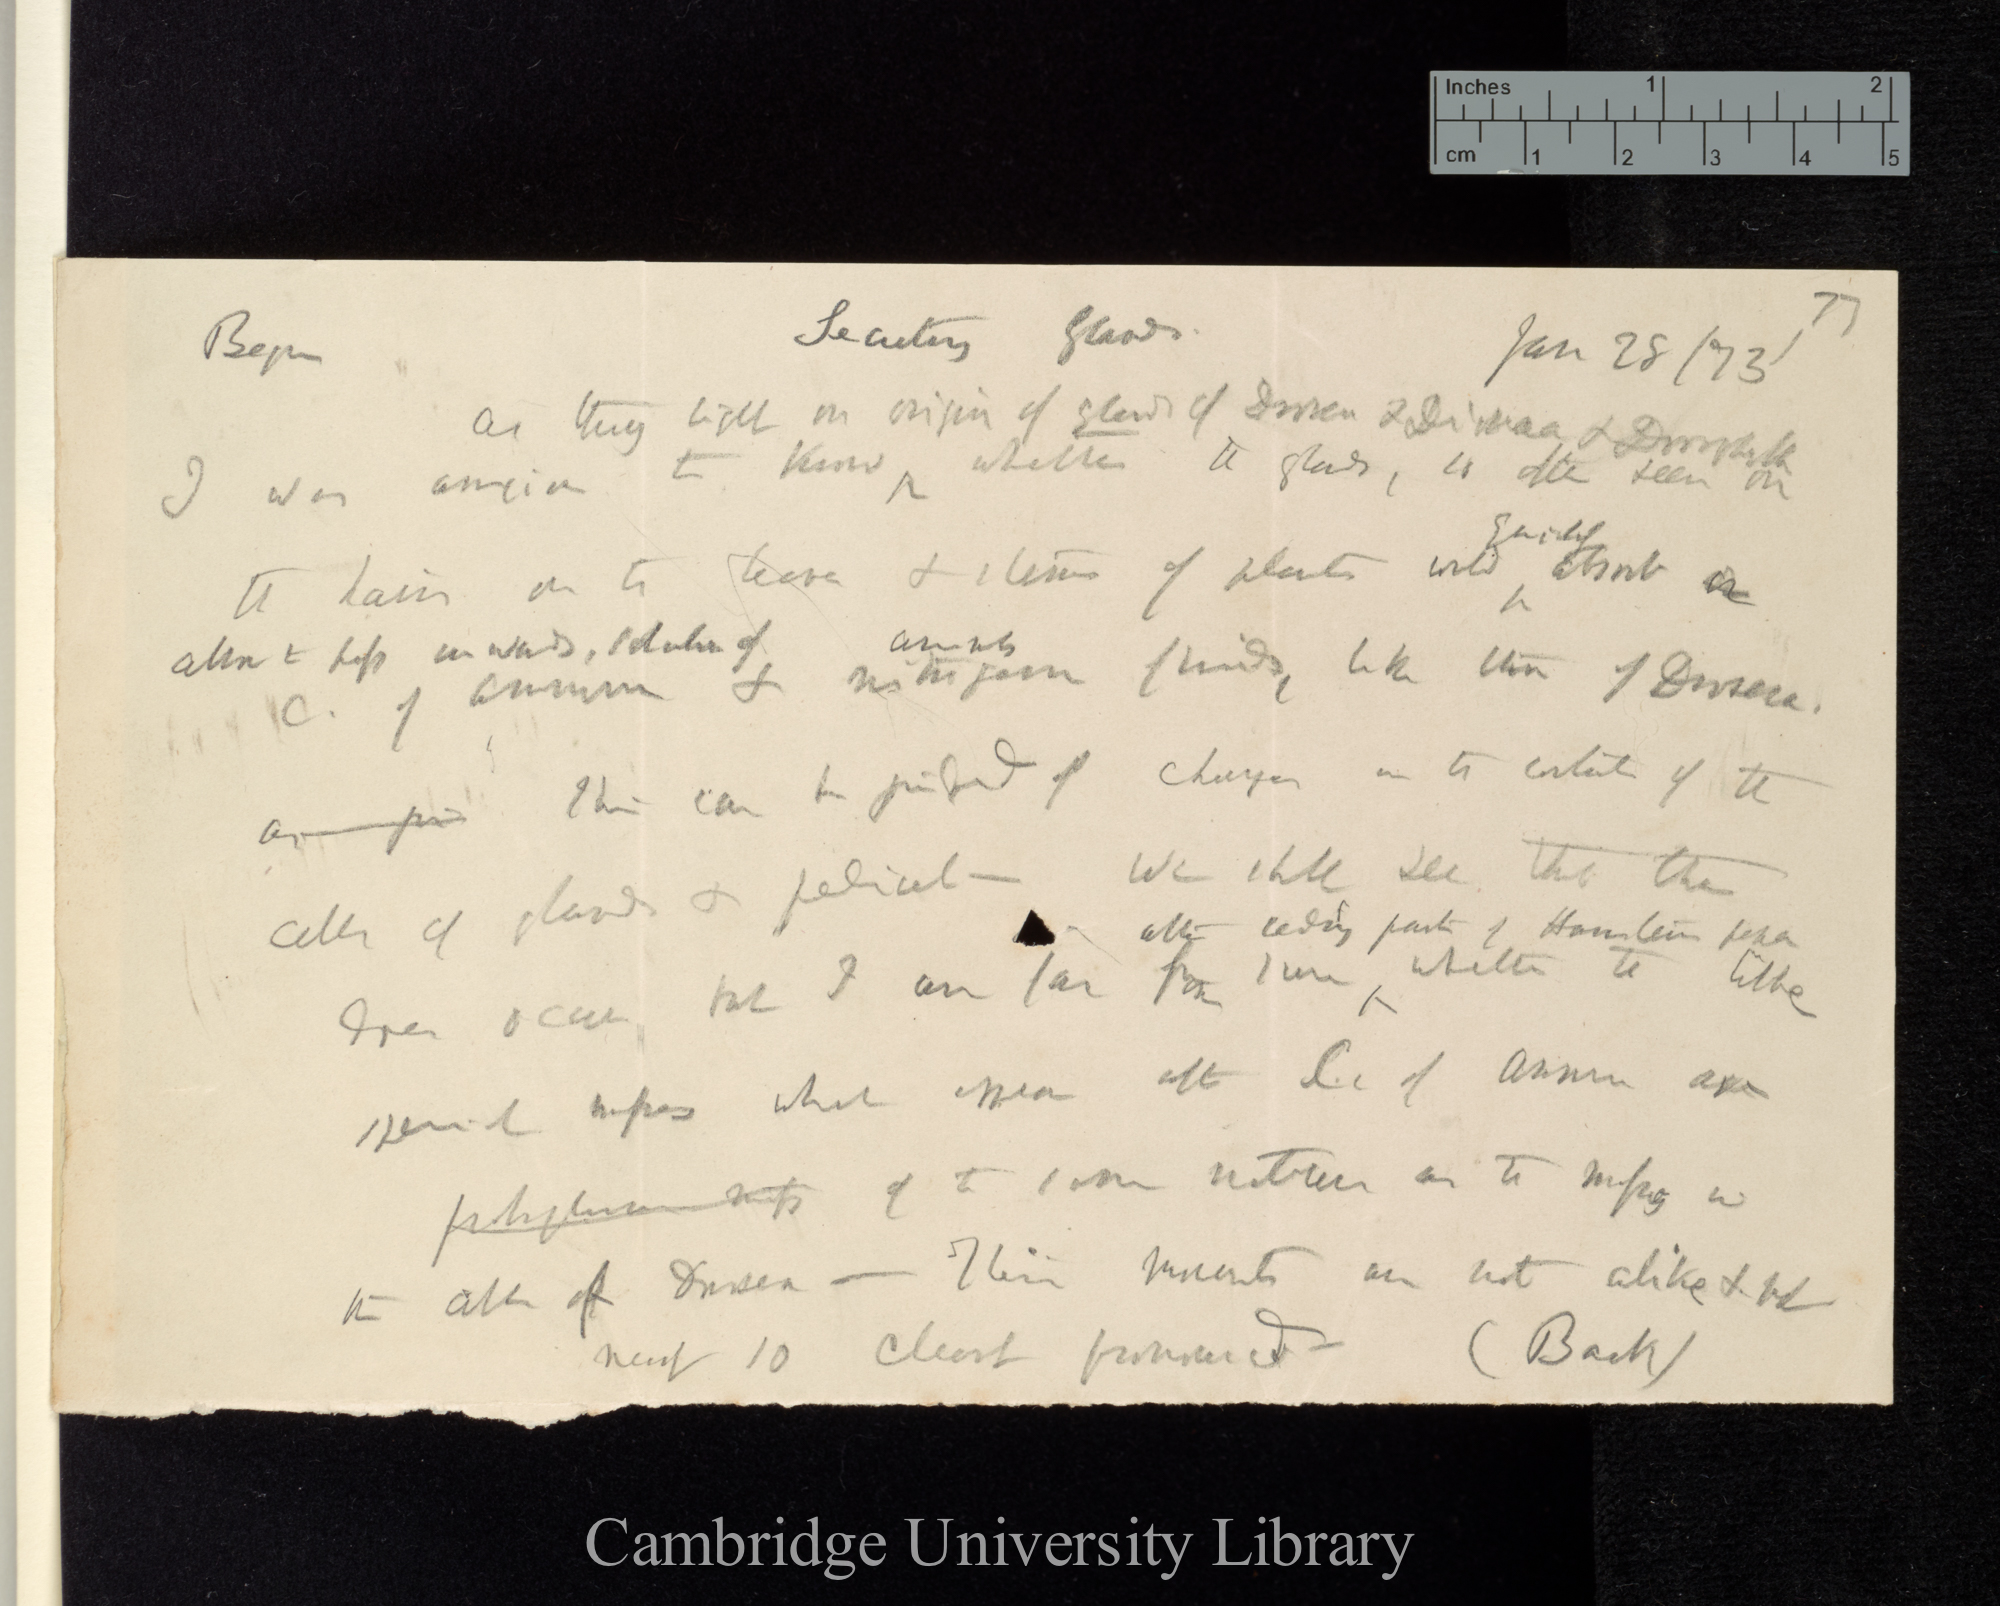 Inches 1 2
cm 1 2 3 4 5
77
Begun Secreting Glands. Jan 28 /73/
as throwing light on origin of glands of Drosera & Dionaea & Drosophyllum
I was anxious to know, whether the glands, so often seen on
quickly
the hairs on the leaves & stems of plants would absorb or
solution of
C. of Ammonia & nitrogenous fluids, like those of Drosera.
This can be judged of changes in the contents of the
cells of glands & pedicels — We shall see that this
after reading parts of Hanstein paper
does occur but I am far from sure whether the little
special masses which appear after C. of Ammonia are
of the same nature as the masses in
the cells of Drosera — Their movements are not alike & not
nearly so clearly pronounced — (Back)
Cambridge University Library